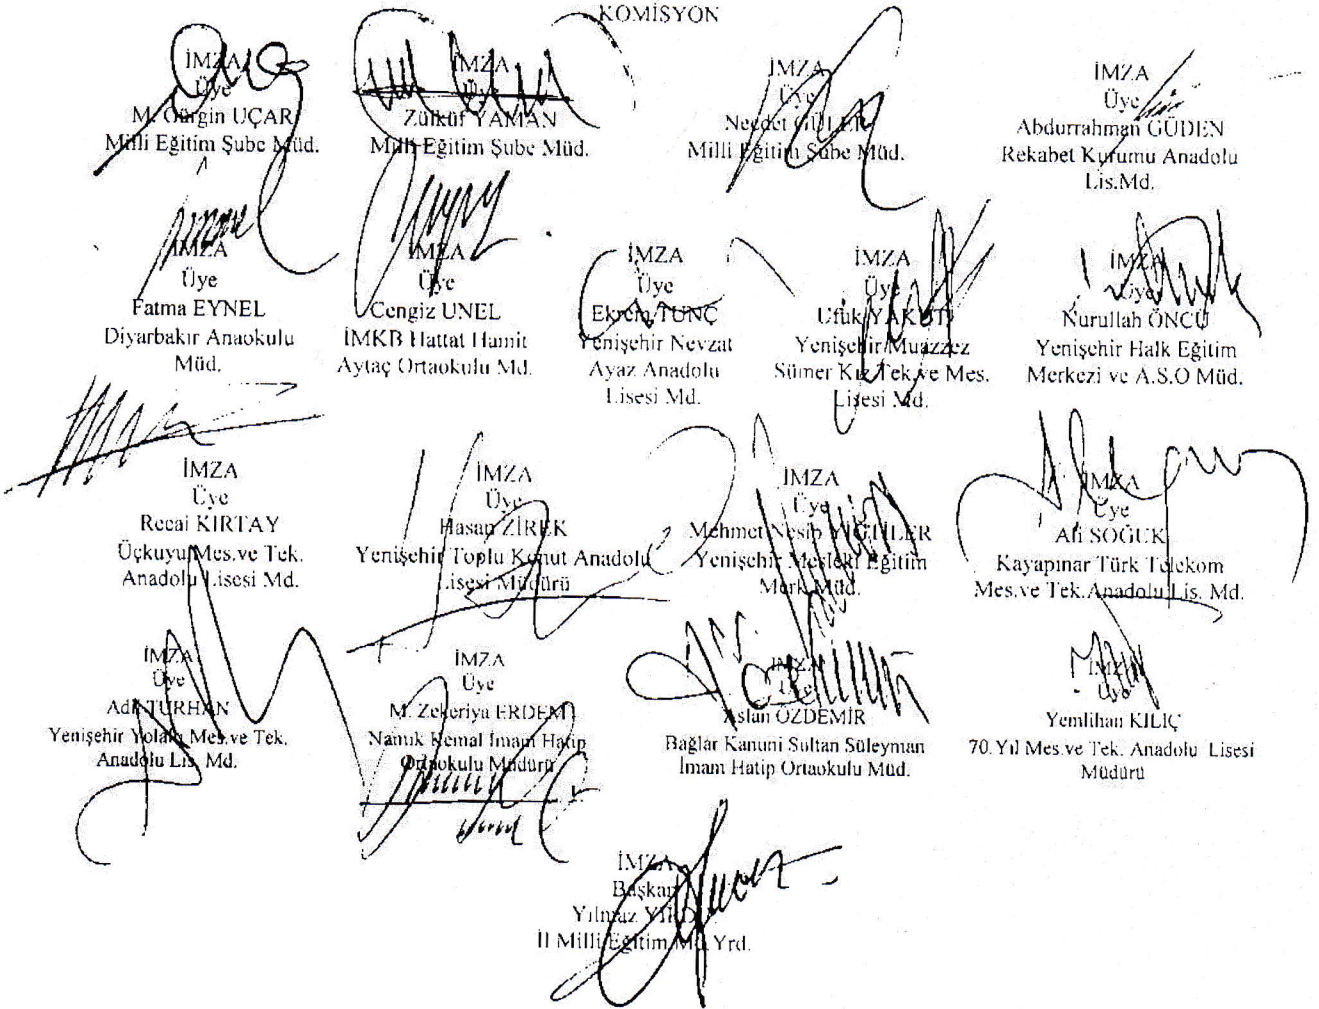 KOMİSYON
İMZA
Üye
M. Gürgin UÇAR
Milli Eğitim Şube Müd.
İMZA
Üye
Zülküf YAMAN
Milli Eğitim Şube Müd.
İMZA
Üye
Necdet GÜLER
Milli Eğitim Şube Müd.
İMZA
Üye
Abdurrahman GÜDEN
Rekabet Kurumu Anadolu
Lis.Md.
İMZA
Üye
Fatma EYNEL
Diyarbakır Anaokulu
Müd.
İMZA
Üye
Cengiz UNEL
İMKB Hattat Hamit
Aytaç Ortaokulu Md.
İMZA
Üye
Ekrem TUNÇ
Yenişehir Nevzat
Ayaz Anadolu
Lisesi Md.
İMZA
Üye
Ufuk YAKUT
Yenişehir Muazzez
Sümer Kız Tek.ve Mes.
Lisesi Md.
İMZA
Üye
Nurullah ÖNCÜ
Yenişehir Halk Eğitim
Merkezi ve A.S.O Müd.
İMZA
Üye
Recai KIRTAY
Üçkuyu Mes.ve Tek.
Anadolu Lisesi Md.
İMZA
Üye
Hasan ZİREK
Yenişehir Toplu Konut Anadolu
Lisesi Müdürü
İMZA
Üye
Mehmet Nesip
Yenişehir Mesleki Eğitim
Merk.Müd.
İMZA
Üye
Ali SOĞUK
Kayapınar Türk Telekom
Mes.ve Tek.Anadolu Lis. Md.
İMZA
Üye
Adil TURHAN
Yenişehir Yolaltı Mes.ve Tek.
Anadolu Lis. Md.
İMZA
Üye
M. Zekeriya ERDEM
Namık Kemal İmam Hatip
Ortaokulu Müdürü
İMZA
Üye
Aslan ÖZDEMİR
Bağlar Kanuni Sultan Süleyman
İmam Hatip Ortaokulu Müd.
İMZA
Üye
Yemlihan KILIÇ
70.Yıl Mes.ve Tek. Anadolu Lisesi
Müdürü
İMZA
Başkan
Yılmaz
İl Milli Eğitim Md.Yrd.